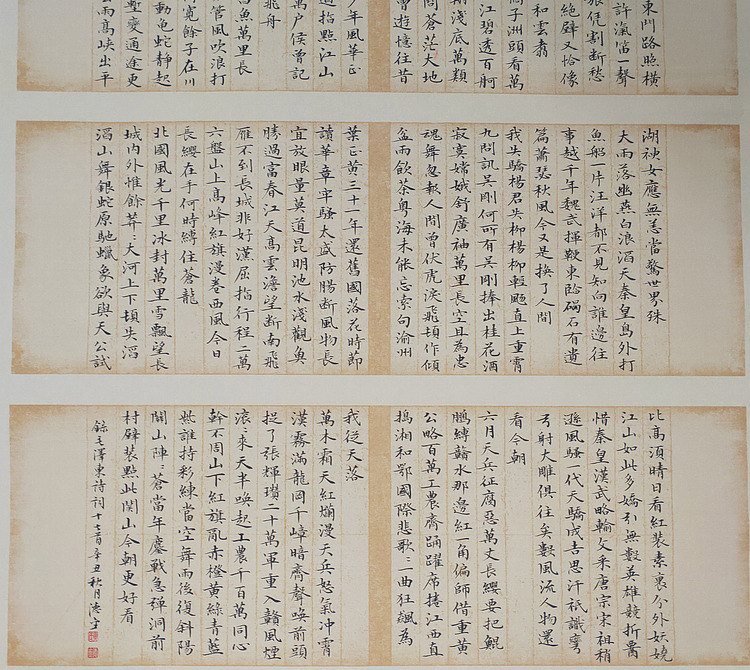 東門路照橫
許汽笛一聲
旅憑割斷愁
絕壁又恰像
和雲翥
橘子洲頭看萬
江碧透百舸
翔淺底萬類
問蒼茫大地
曾遊憶往昔
少年風華正
遒指點江山
萬戶侯曾記
飛舟
昌魚萬里長
管風吹浪打
寬餘子在川
動龜蛇靜起
塹變通途更
雲雨高峽出平
湖神女應無恙當驚世界殊
大雨落幽燕白浪滔天秦皇島外打
魚船一片汪洋都不見知向誰邊往
事越千年魏武揮鞭東臨碣石有遺
篇蕭瑟秋風今又是換了人間
我失驕楊君失柳楊柳輕颺直上重霄
九問訊吳剛何所有吳剛捧出桂花酒
寂寞嫦娥舒廣袖萬里長空且為忠
魂舞忽報人間曾伏虎淚飛頓作傾
盆雨飲茶粵海未能忘索句渝州
葉正黃三十一年還舊國落花時節
讀華章牢騷太盛防腸斷風物長
宜放眼量莫道昆明池水淺觀魚
勝過富春江天高雲澹望斷南飛
雁不到長城非好漢屈指行程二萬
六盤山上高峰紅旗漫卷西風今日
長纓在手何時縛住蒼龍
北國風光千里冰封萬里雪飄望長
城內外惟餘莽〻大河上下頓失滔
滔山舞銀蛇原馳蠟象欲與天公試
比高須晴日看紅裝素裹分外妖嬈
江山如此多嬌引無數英雄競折腰
惜秦皇漢武略輸文采唐宗宋祖稍
遜風騷一代天驕成吉思汗祇識彎
弓射大雕俱往矣數風流人物還
看今朝
六月天兵征腐惡萬丈長纓要把鯤
鵬縛贛水那邊紅一角偏師借重黃
公略百萬工農齊踴躍席捲江西直
搗湘和鄂國際悲歌〻一曲狂飆為
我從天落
萬木霜天紅爛漫天兵怒氣沖霄
漢霧滿龍岡千嶂暗齊聲喚前頭
捉了張輝瓚二十萬軍重入贛風煙
滾〻來天半喚起工農千百萬同心
幹不周山下紅旗亂赤橙黃綠青藍
紫誰持彩練當空舞雨後復斜陽
關山陣〻蒼當年鏖戰急彈洞前
村壁裝點此關山今朝更好看
錄毛澤東詩詞十七首辛丑秋月